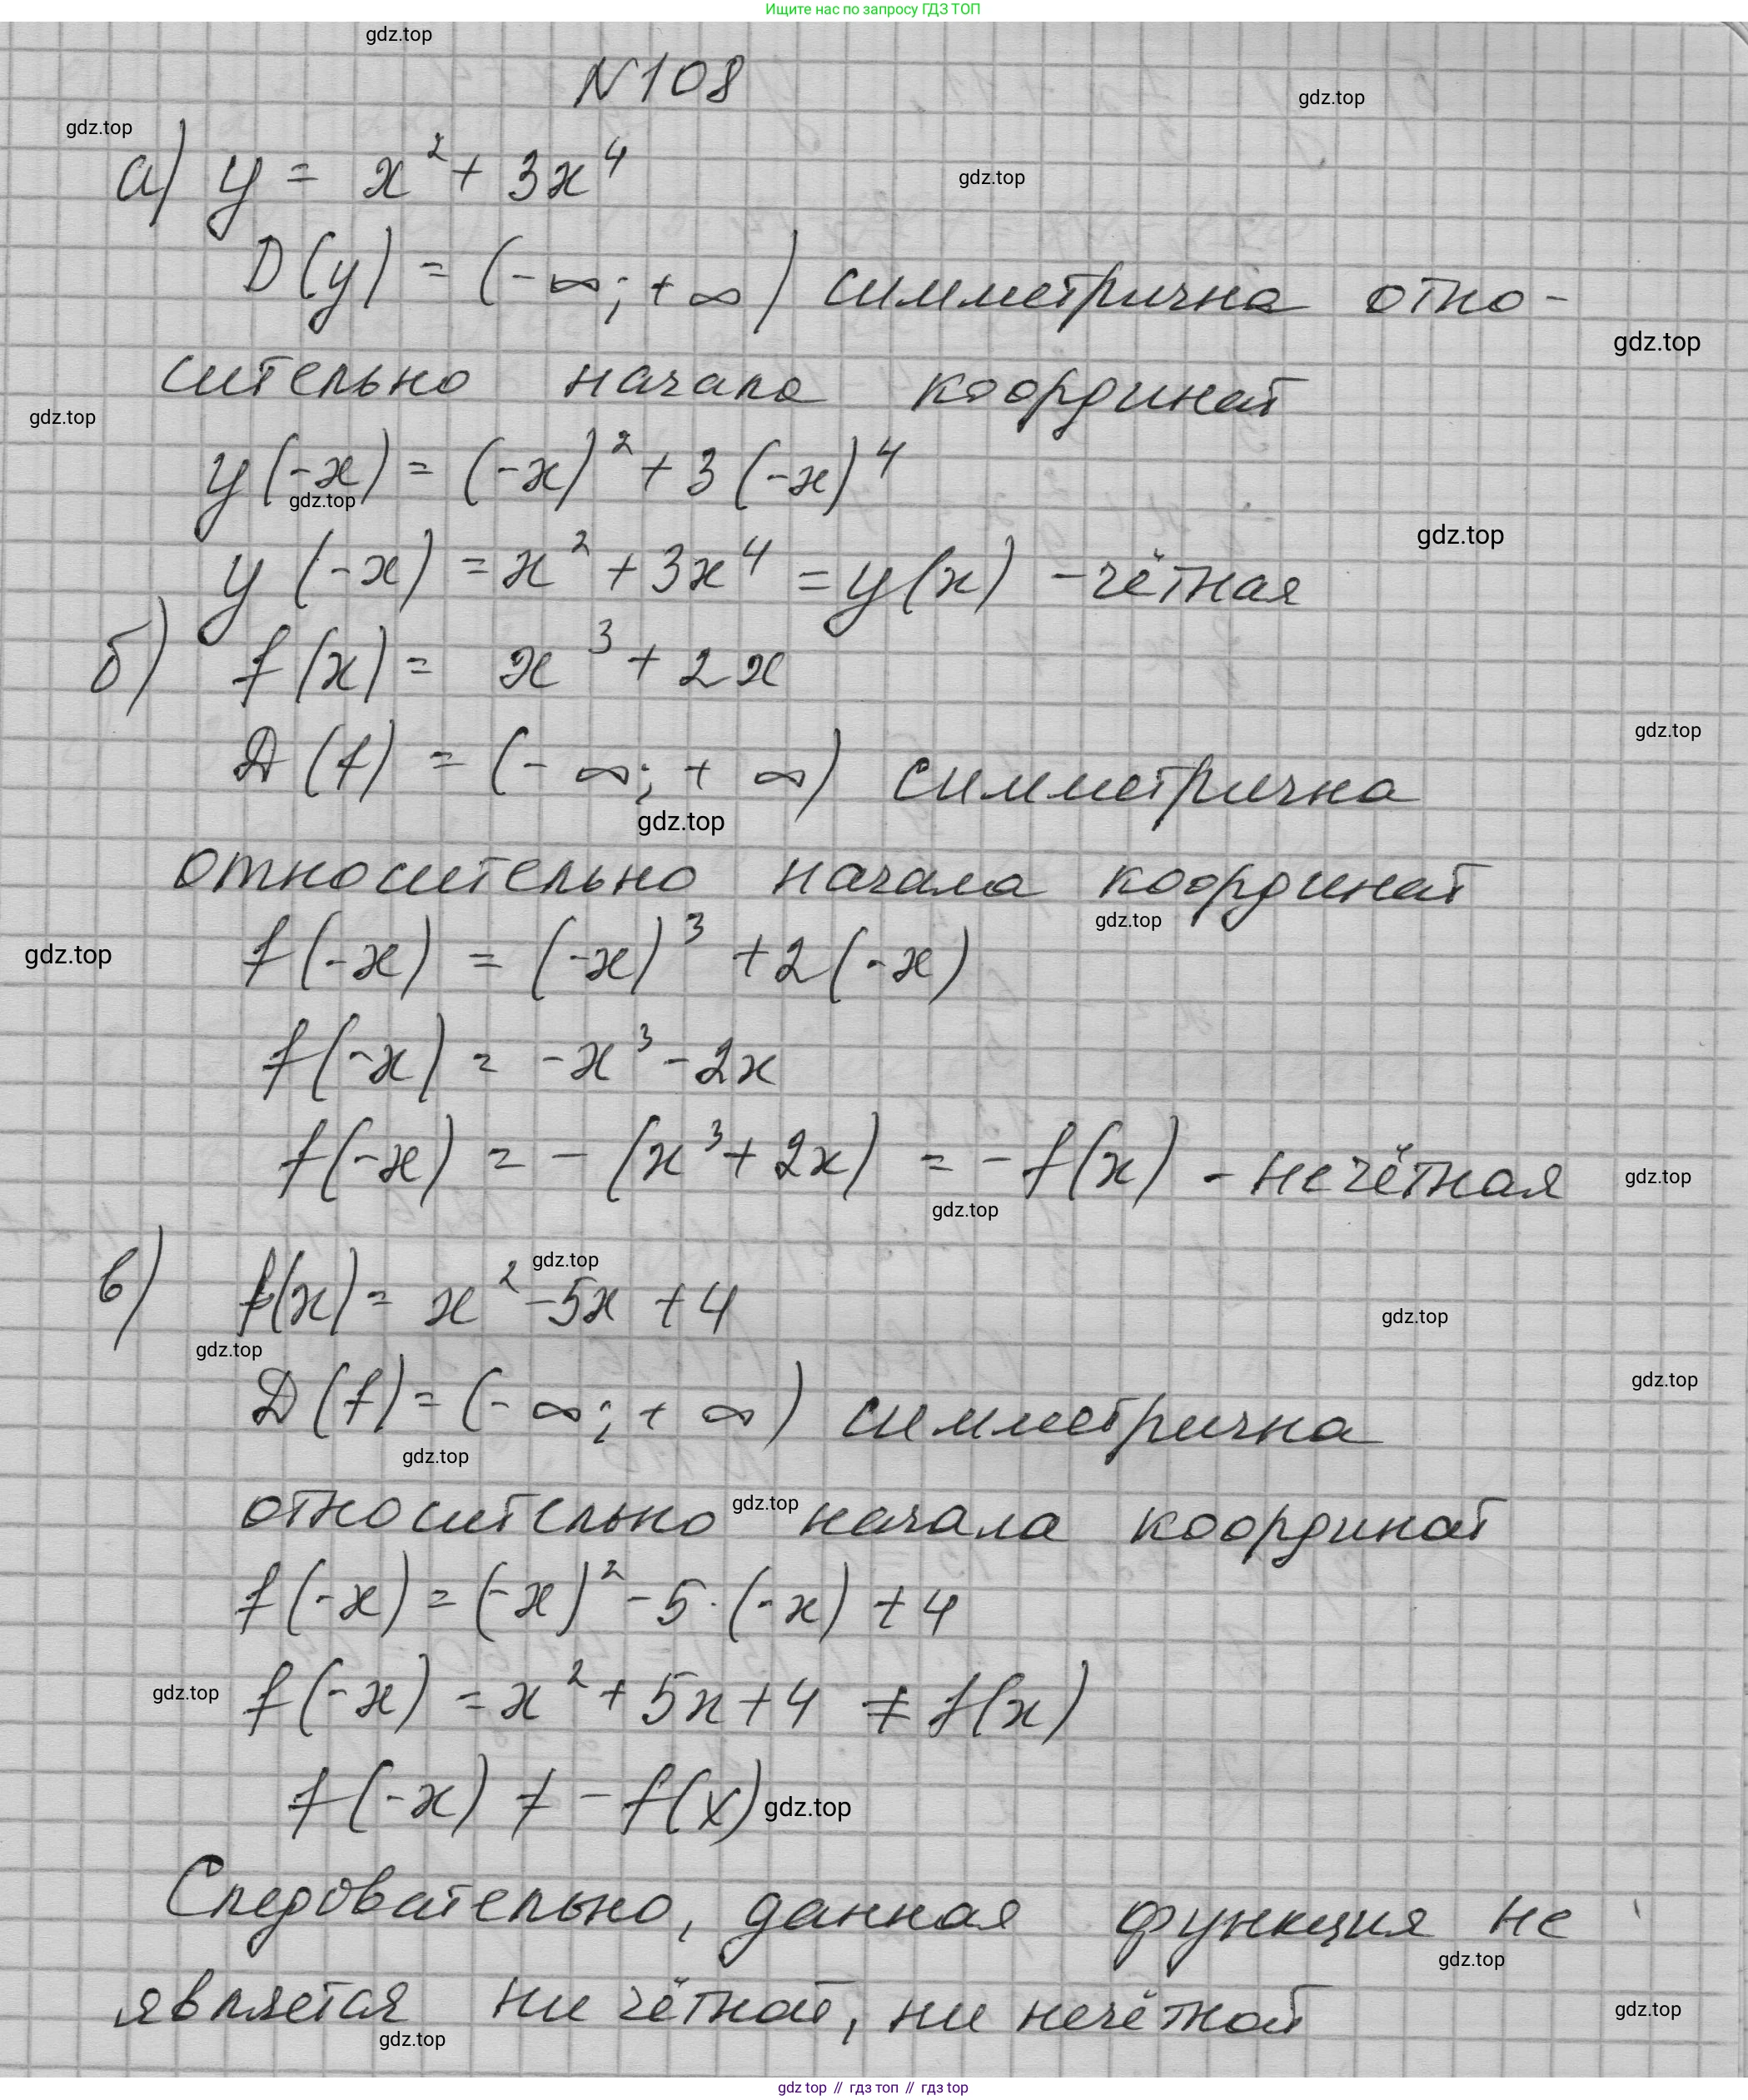 Ищите нас по запросу ГДЗ ТОП
gdz.top
N108
gdz.top
gdz.top
а) y = x² + 3x⁴
gdz.top
D(y) = (-∞; +∞) симметрична отно-
gdz.top
сительно начала координат
gdz.top
y(-x) = (-x)² + 3(-x)⁴
gdz.top
gdz.top
y(-x) = x² + 3x⁴ = y(x) - чётная
б) f(x) = x³ + 2x
gdz.top
D(f) = (-∞; +∞) симметрична
gdz.top
относительно начала координат
gdz.top
gdz.top
f(-x) = (-x)³ + 2(-x)
f(-x) = -x³ - 2x
f(-x) = -(x³ + 2x) = -f(x) - нечётная
gdz.top
gdz.top
gdz.top
в) f(x) = x² - 5x + 4
gdz.top
gdz.top
gdz.top
D(f) = (-∞; +∞) симметрична
gdz.top
gdz.top
относительно начала координат
f(-x) = (-x)² - 5·(-x) + 4
gdz.top
f(-x) = x² + 5x + 4 ≠ f(x)
f(-x) ≠ -f(x)
gdz.top
Следовательно, данная функция не
gdz.top
является ни чётной, ни нечётной
gdz.top
gdz.top
gdz.top // гдз топ // гдз top